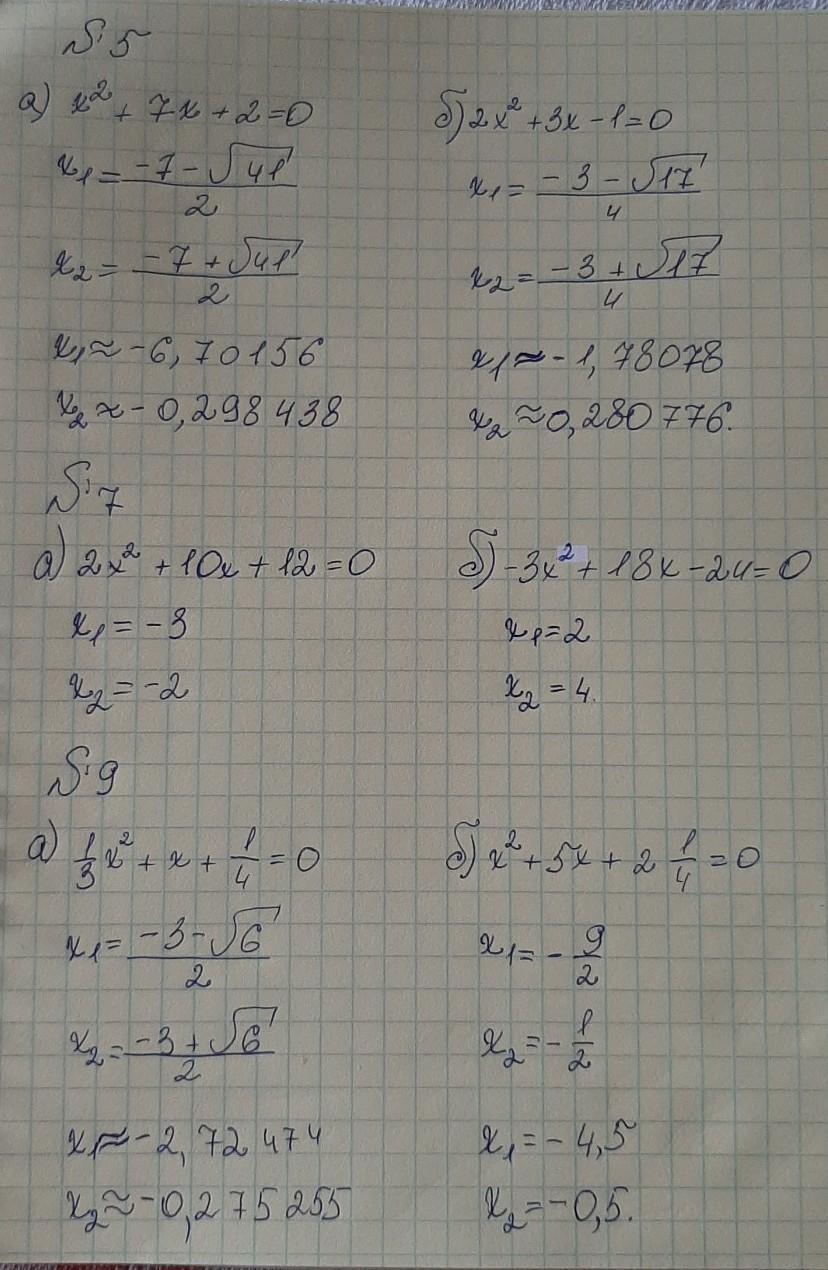 №5
а) x² + 7x + 2 = 0
x₁ = (-7 - √41)/2
x₂ = (-7 + √41)/2
x₁ ≈ -6,70156
x₂ ≈ -0,298438
б) 2x² + 3x - 1 = 0
x₁ = (-3 - √17)/4
x₂ = (-3 + √17)/4
x₁ ≈ -1,78078
x₂ ≈ 0,280776.
№7
а) 2x² + 10x + 12 = 0
x₁ = -3
x₂ = -2
б) -3x² + 18x - 24 = 0
x₁ = 2
x₂ = 4.
№9
а) 1/3 x² + x + 1/4 = 0
x₁ = (-3 - √6)/2
x₂ = (-3 + √6)/2
x₁ ≈ -2,72474
x₂ ≈ -0,275255
б) x² + 5x + 2 1/4 = 0
x₁ = -9/2
x₂ = -1/2
x₁ = -4,5
x₂ = -0,5.